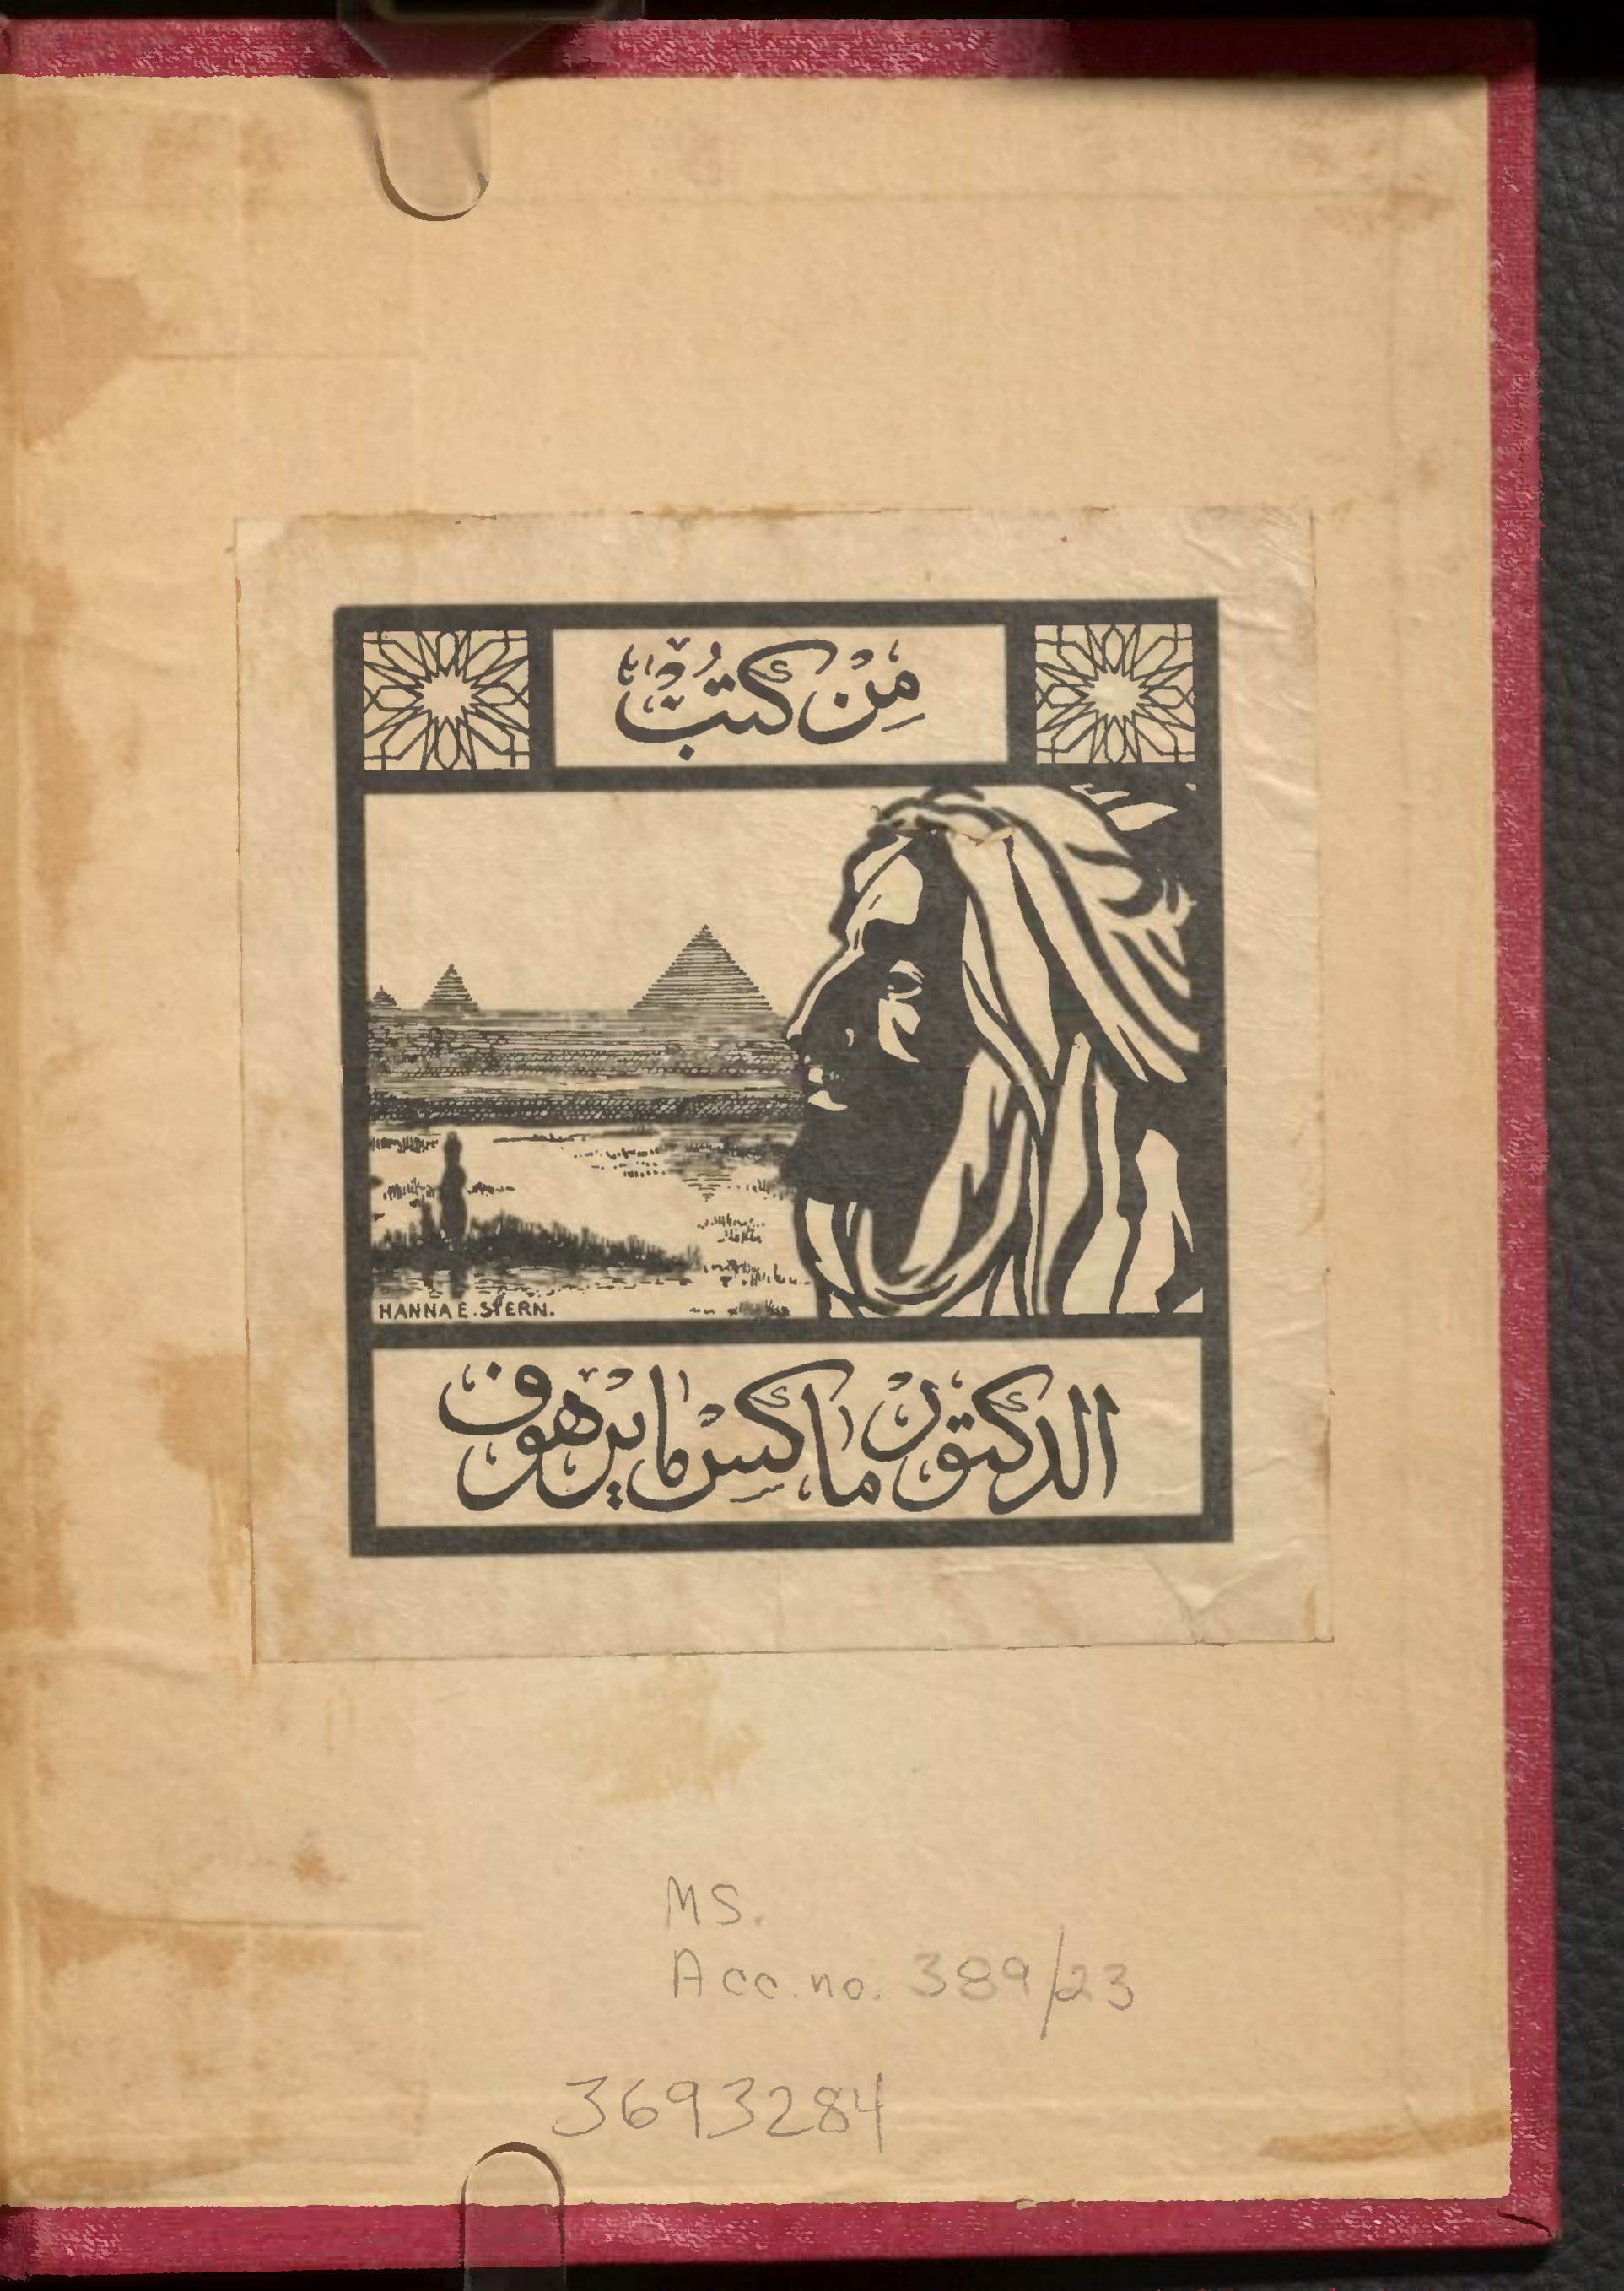 مِنْ كتُبْ
HANNA E. STERN.
الدكتور ماكس مايرهوف
MS.
Acc. no. 389/23
3693284